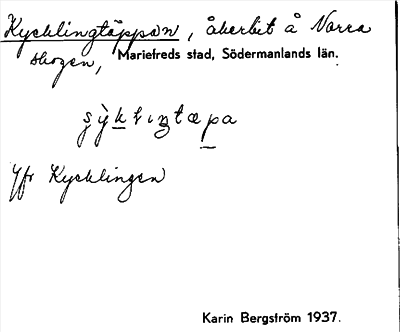 Kycklingtäppan, åkerbit å Norra
skogen, Mariefreds stad, Södermanlands län.
Jfr Kycklingen
Karin Bergström 1937.